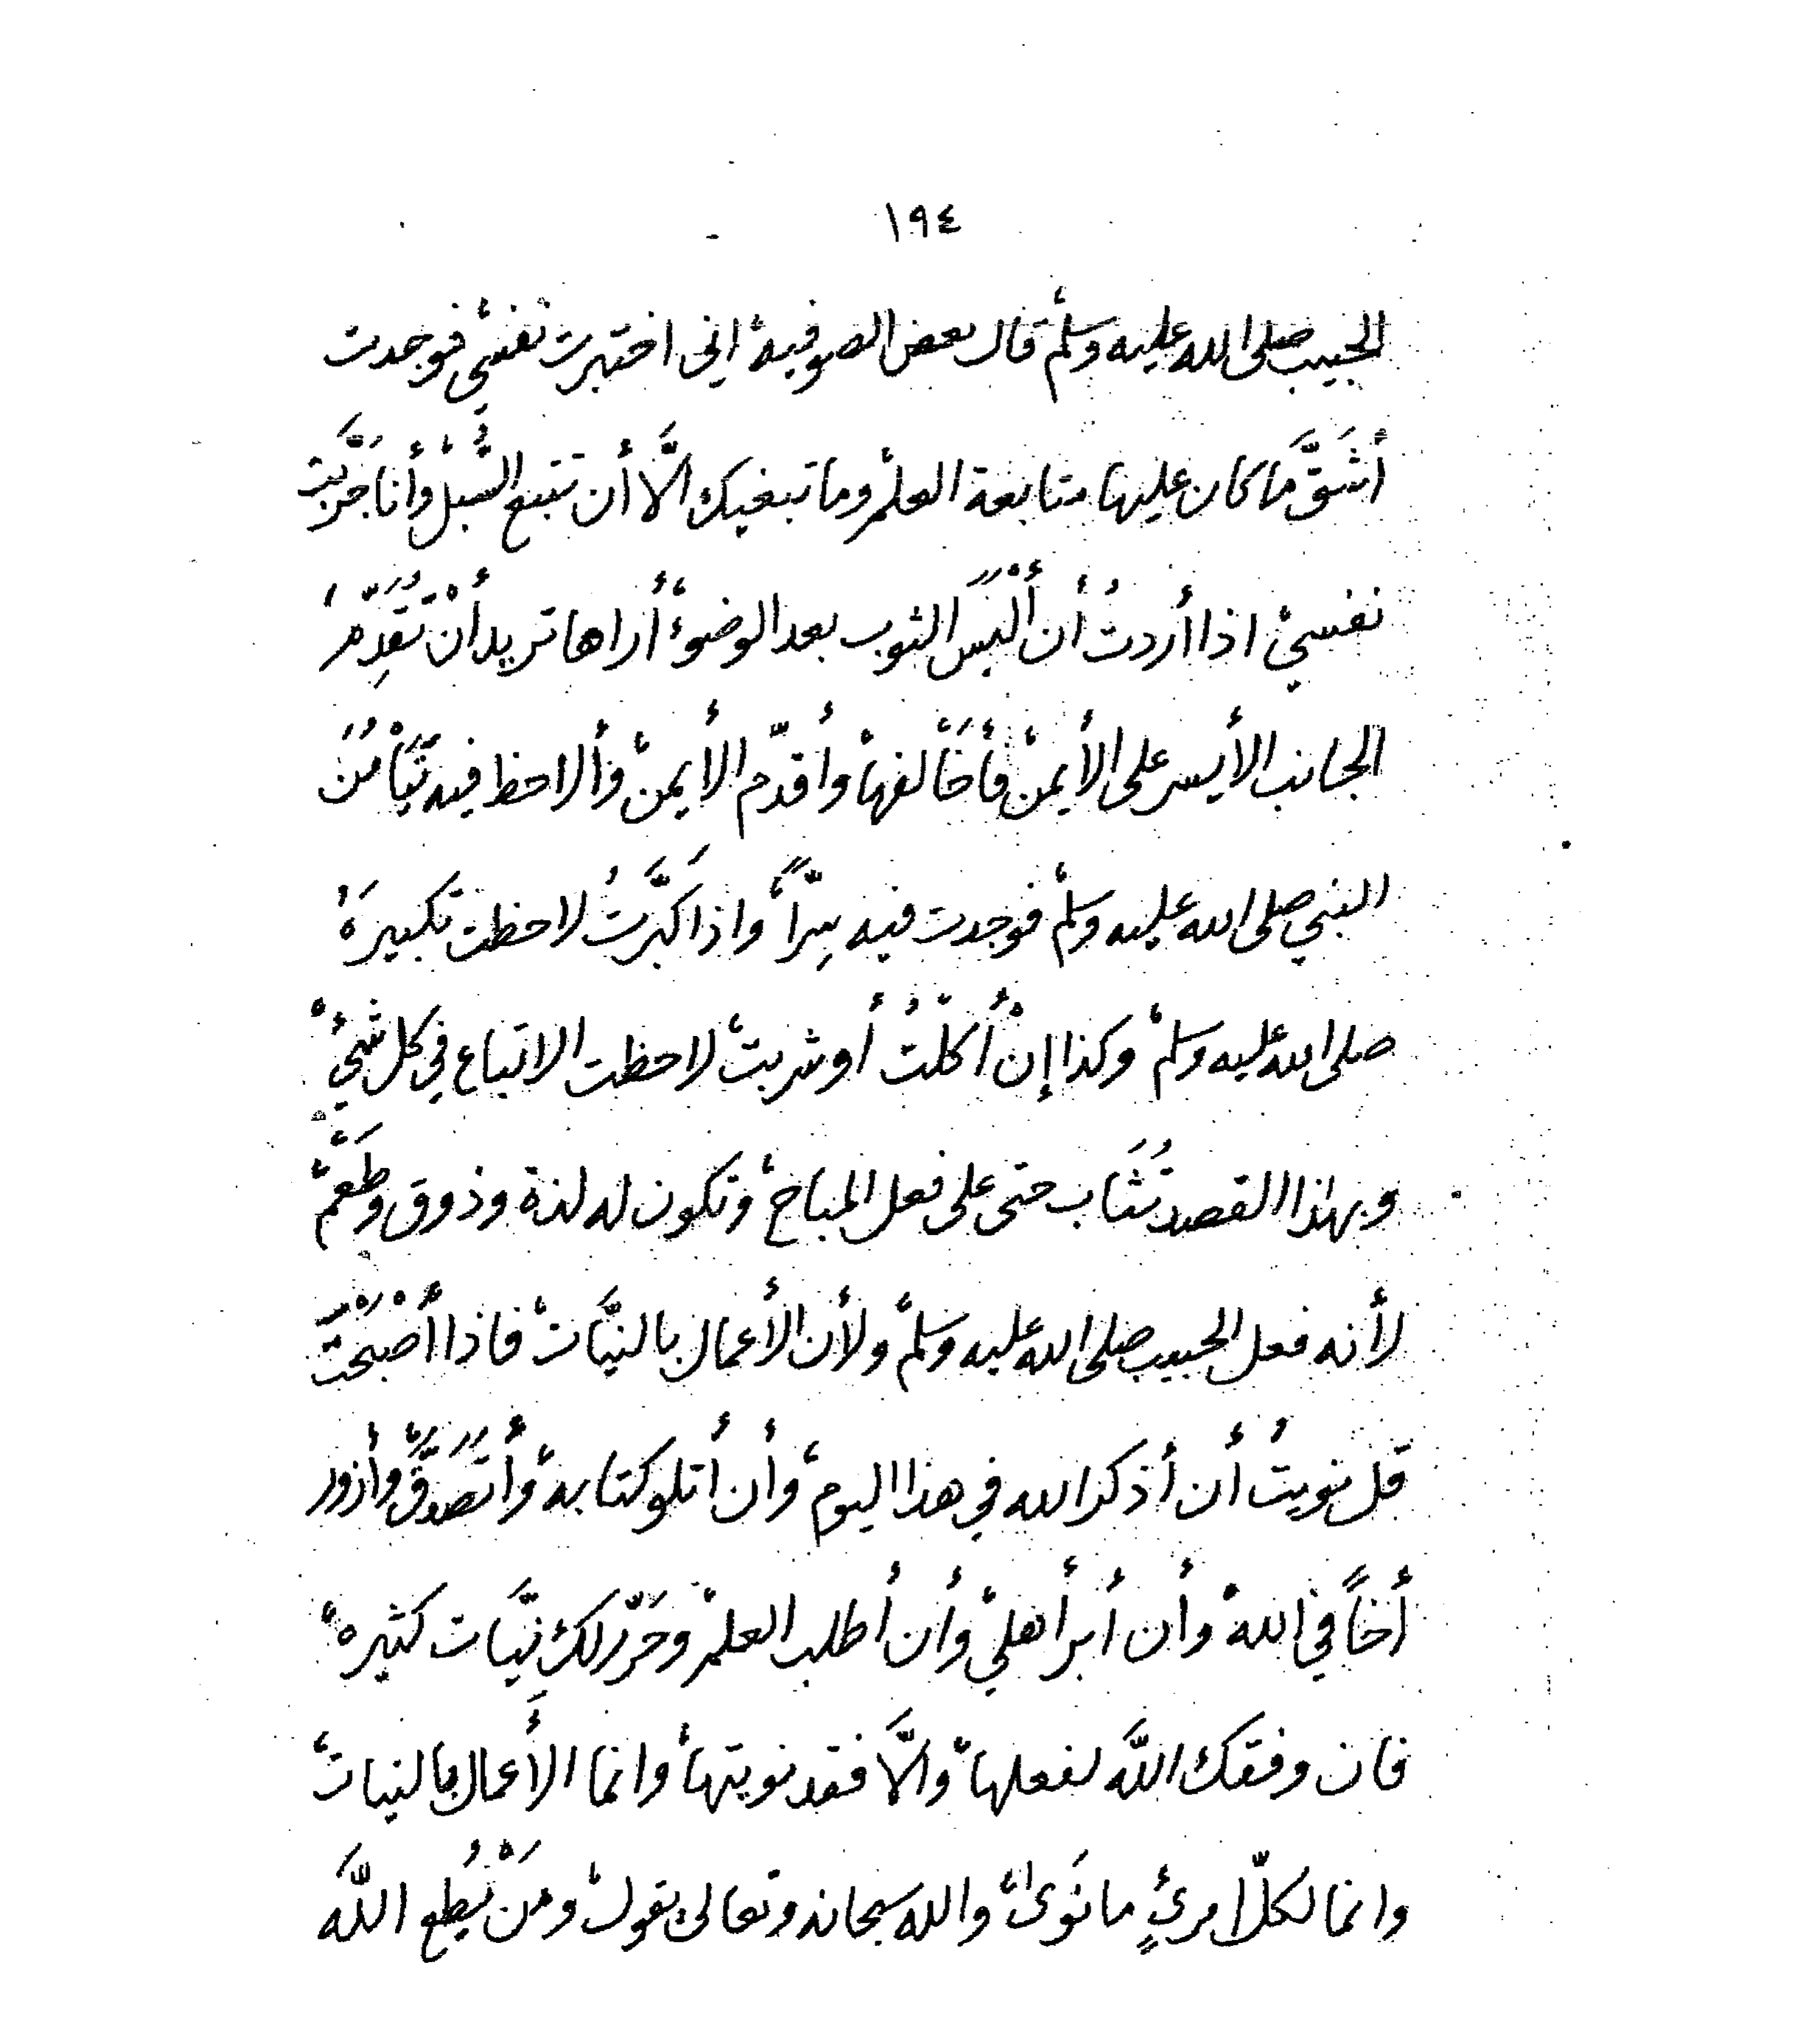 ١٩٤
الحبيب صلى الله عليه وسلم قال بعض الصوفيه اني اختبرت نفسي فوجدت
أشَقَّ ما كان عليها متابعة العلم وما تبغيك الَّا أن تتبع السُّبلْ وأنا جَرَّبت
نفسيْ اذا أردتُ أن أَلْبَس الثوب بعد الوضوءْ أراها تريد أنْ تُقَدِّم
الجانب الأيسر على الأيمنْ فأُخَالفهاْ وأُقدّم الأيمنْ وألاحظ فيه تَيَامُنَ
النبي صلى الله عليه وسلمْ فوجدت فيه سِرّاً واذا كَبَّرتُ لاحظت تكبيرَهُ
صلى الله عليه وسلمْ وكذا إنْ أَكلْتُ أو شربتْ لاحظت الاتباع في كل شيءْ
وبهذا القصد تُثَاب حتى على فعل المباحْ وتكون له لذة وذوق وطَعمْ
لأنه فعل الحبيب صلى الله عليه وسلمْ ولأن الأعمال بالنيَّاتْ فاذا أصْبَحْتَ
قل نويتُ أن أذكر الله في هذا اليومْ وأن أتلو كتابهْ وأتَصَدَّقْ وأزور
أخاً في اللهْ وأن أبر أهليْ وأن أطلب العلمْ وحَرّر لك نيَّات كثيرهْ
فان وفقك اللَّه لفعلهاْ والَّا فقد نويتهاْ وانما الأَعمال بالنياتْ
وانما لكلّ امرئٍ ما نَوىْ والله سبحانه وتعالى يقولْ ومَنْ يُطِع اللَّه